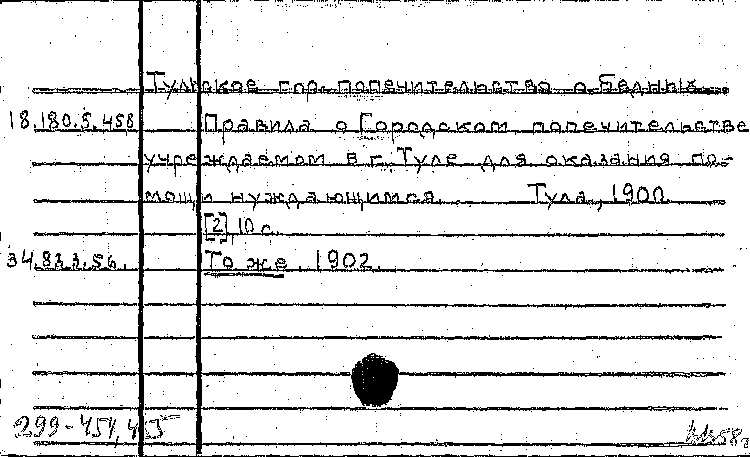 Тульское гор. попечительство о бедных.
18.180.5.458 Правила о Городском попечительстве
учреждаемом в г. Туле для оказания по-
мощи нуждающимся. Тула, 1900.
[2], 10 с.
34.83.3.56. То же. 1902.
299-454,455